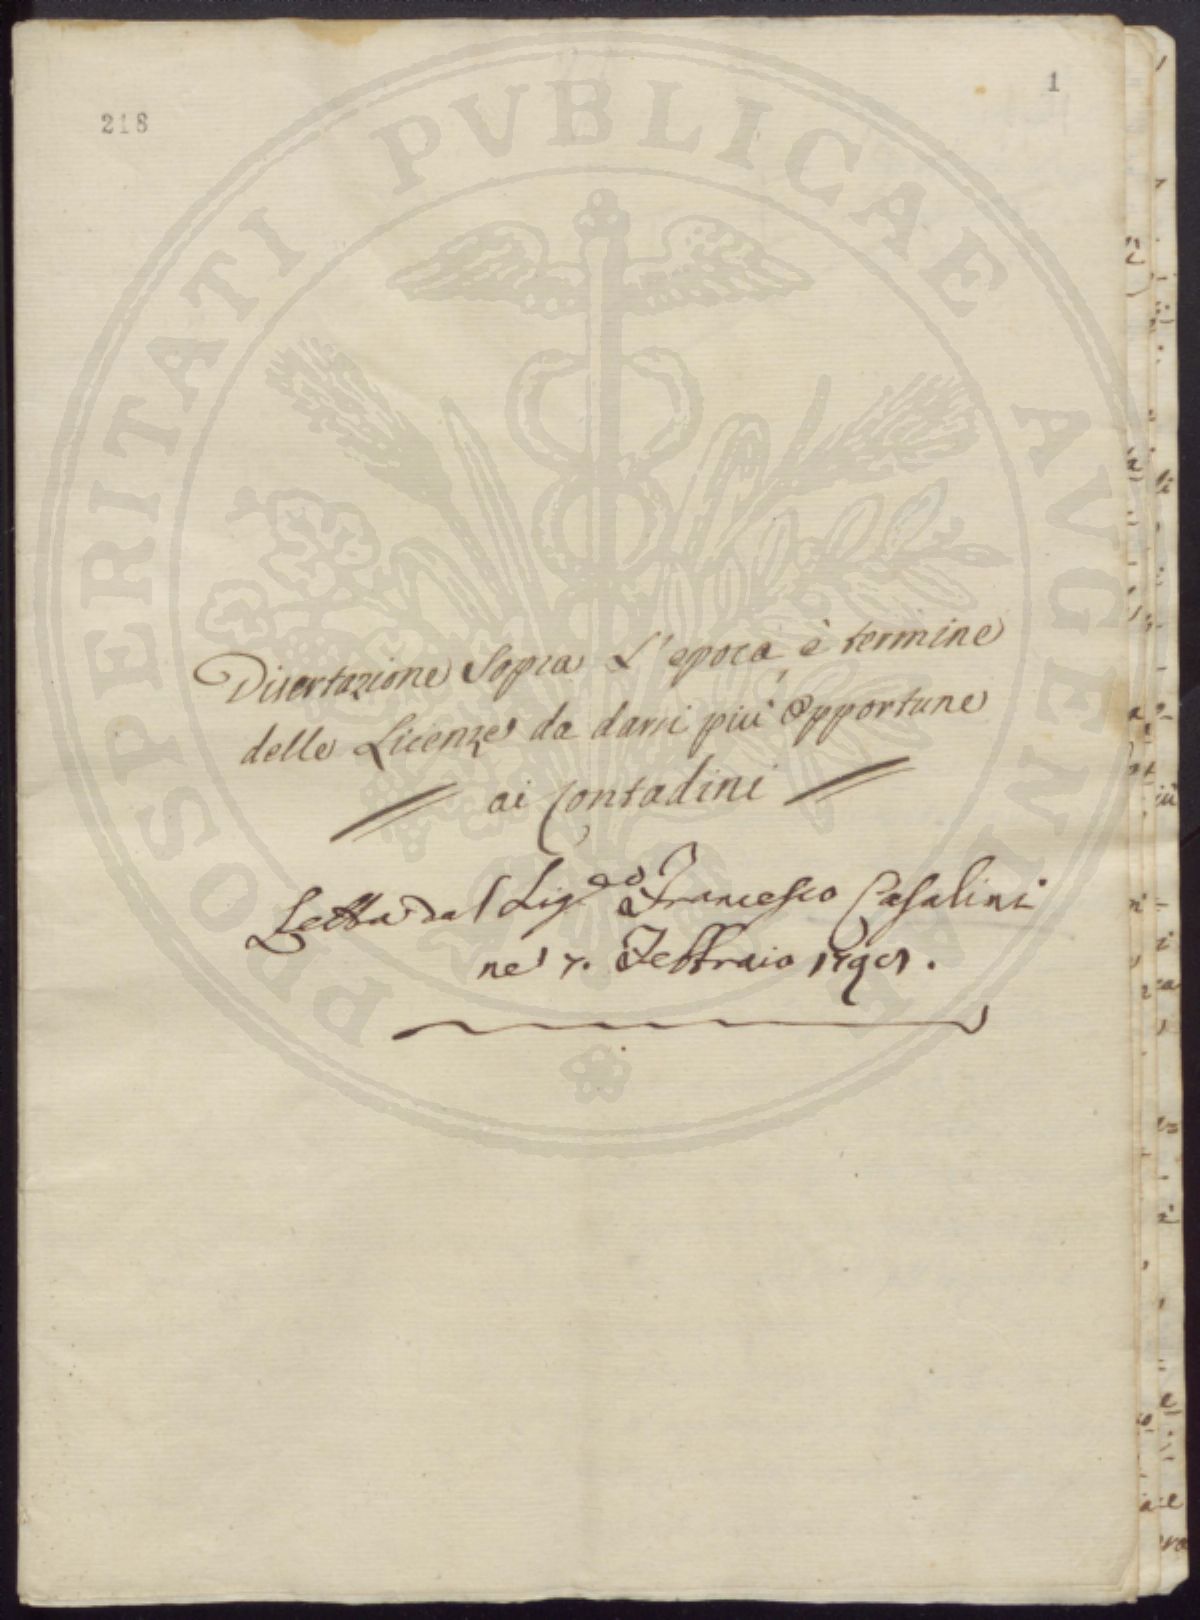 218
1
PROSPERITATI PVBLICAE AVGENDAE
Disertazione Sopra L'epoca è termine
delle Licenze da darsi più Opportune
ai Contadini
Letta dal Sig.^e Francesco Casalini
ne' 7. Febbraio